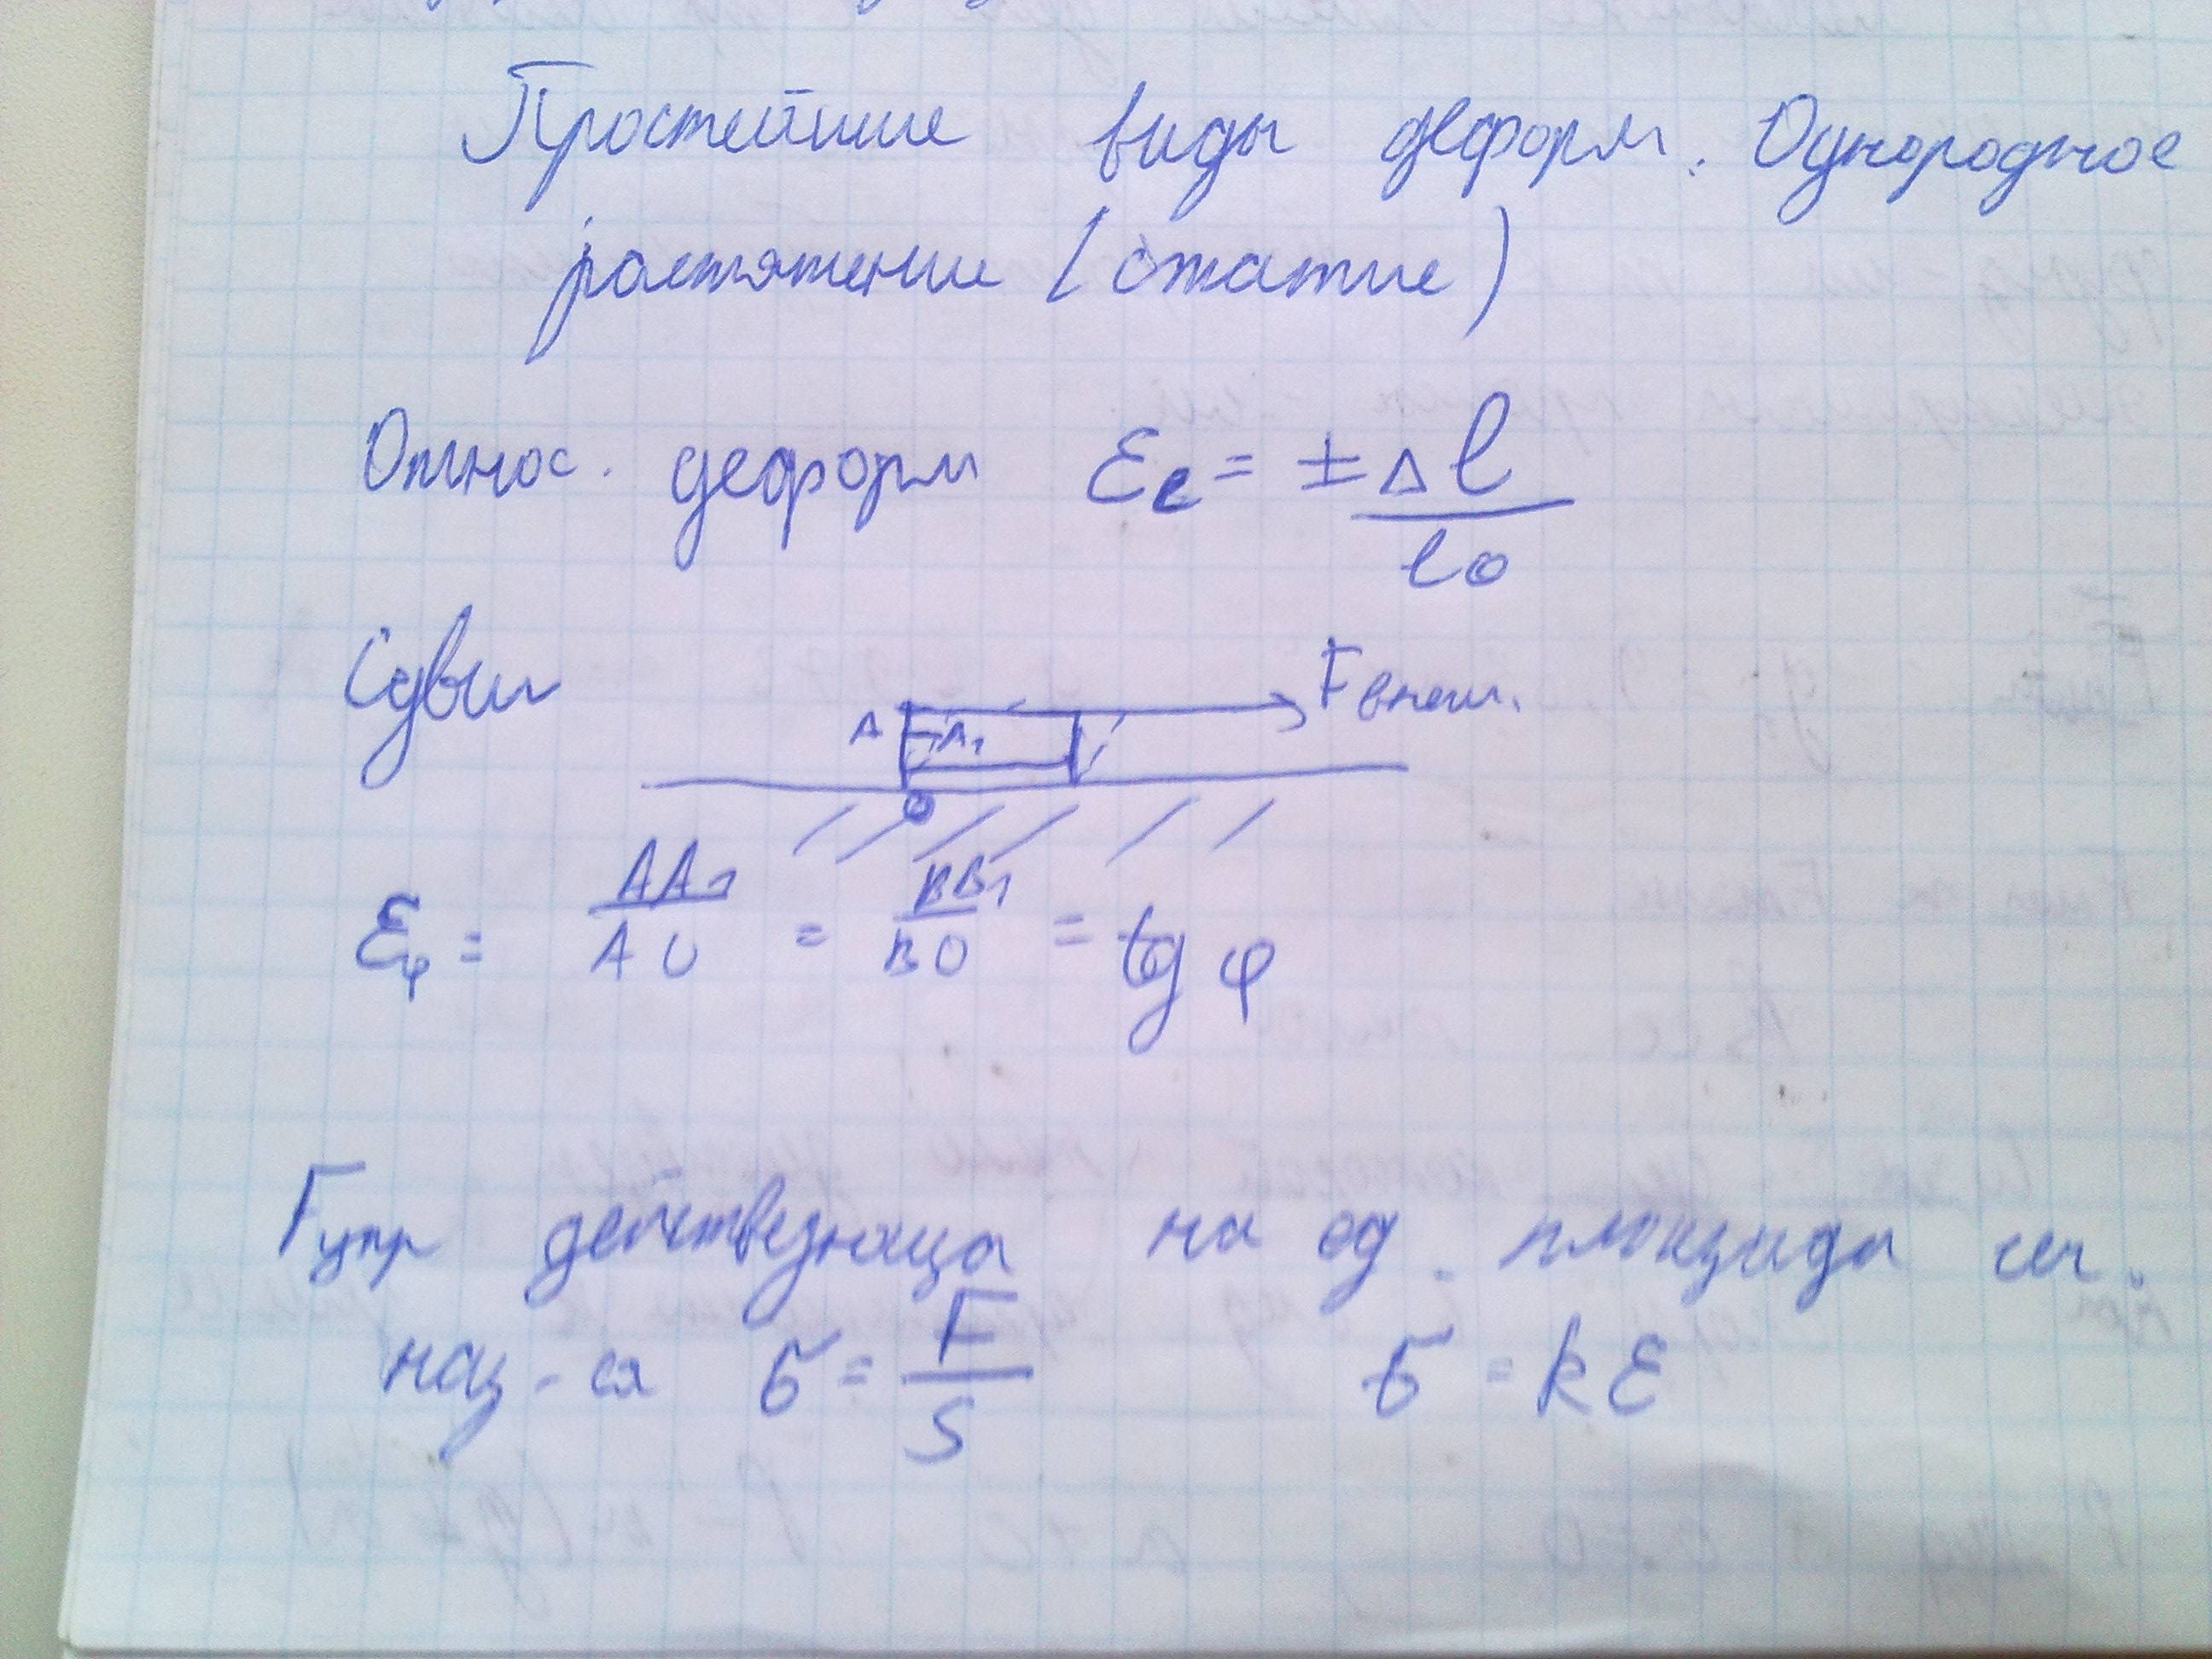 Простейшие виды деформ. Однородное
растяжение (сжатие)
Относ. деформ ε_l = ± Δl / l_0
Сдвиг
F внеш.
A A_1
O
ε_φ = AA_1 / AO = BB_1 / BO = tg φ
F упр действующа на ед. площади сеч.
наз-ся σ = F / S σ = k ε